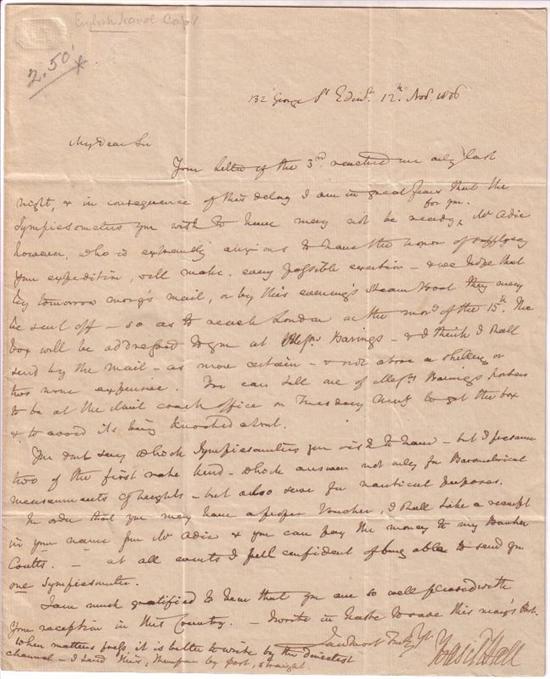 English Naval Capt
2.50
132 George St Edinr. 12th. Novr. 1836
My Dear Sir
Your letter of the 3rd. reached me only last
night, & in consequence of this delay I am in great fears that the
Sympiesometers you wish to have may not be ready for you. Mr Adie
however, who is extremely anxious to have the honor of supplying
your expedition, will make every possible exertion – & we hope that
by tomorrow morngs mail, or by this evening's Steam Vessel they may
be sent off – so as to reach London on the morng of the 15th. The
box will be addressed to you at Messrs Barings – & I think I shall
send by the mail – as more certain – & not above a shilling or
two more expensive. You can tell one of Messrs Barings porters
to be at the mail coach office on Tuesday to get the box
& to avoid its being knocked about.
You dont say which Sympiesometers you wish to have – but I presume
two of the first rate kind – which answer not only for Barometrical
measurements of heights – but also serve for nautical purposes.
In order that you may have a proper Voucher, I shall take a receipt
in your name from Mr Adie & you can pay the money to my Banker
Coutts. – at all events I feel confident of being able to send you
one Sympiesometer.
I am much gratified to hear that you are so well pleased with
your reception in this Country. – I write in haste to save this morngs Post.
I am most truly Yrs.
Basil Hall
When matters press, it is better to write by the directest
channel – I send this, by post, straight